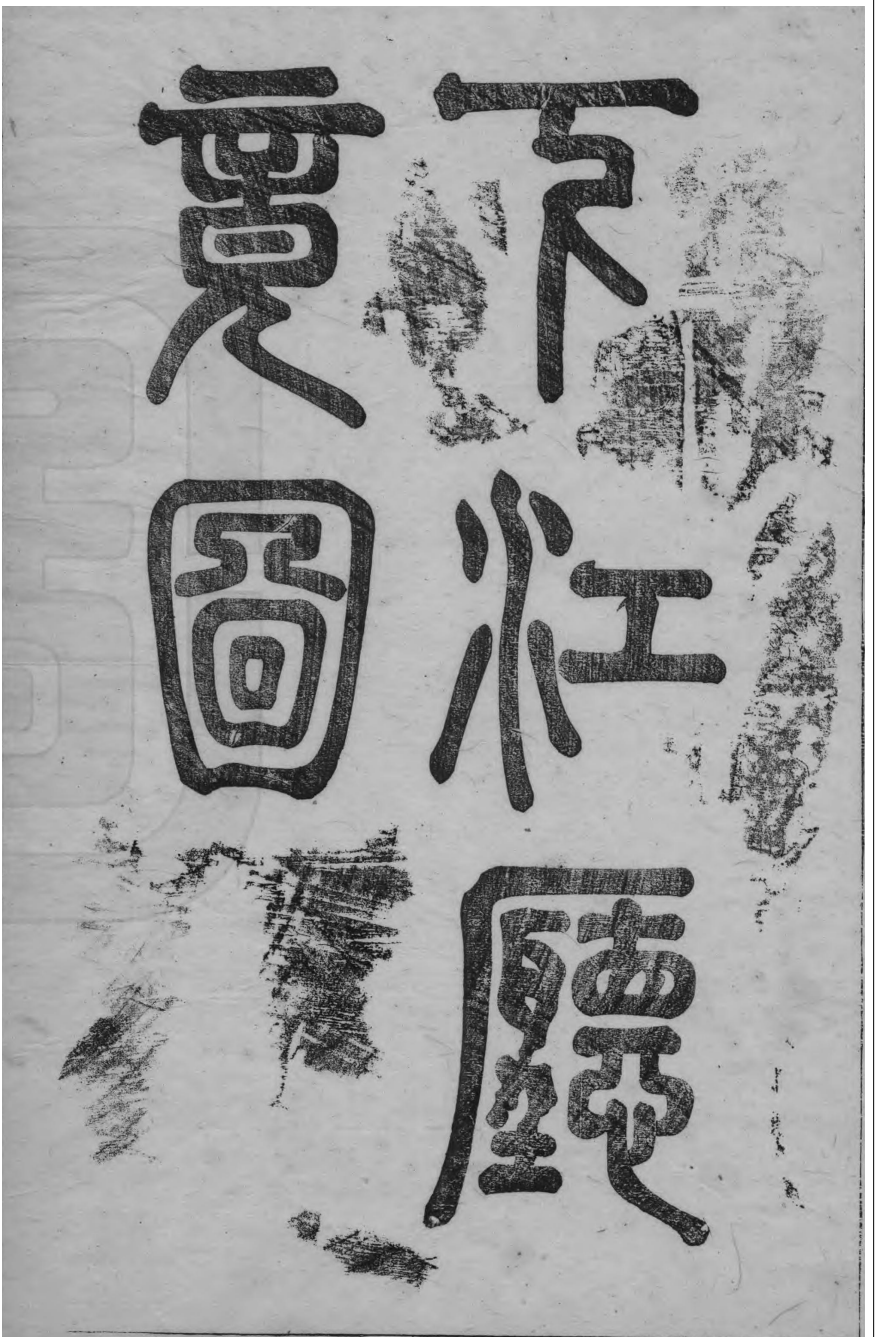 下江廳
竟圖